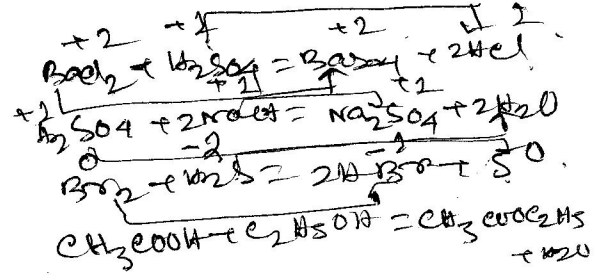 +2 +1 +2 +1
BaCl2 + H2SO4 = BaSO4 + 2HCl
+1 +1 +1
H2SO4 + 2NaOH = Na2SO4 + 2H2O
0 -2 -1 0
Br2 + H2S = 2HBr + S
CH3COOH + C2H5OH = CH3COOC2H5
+ H2O